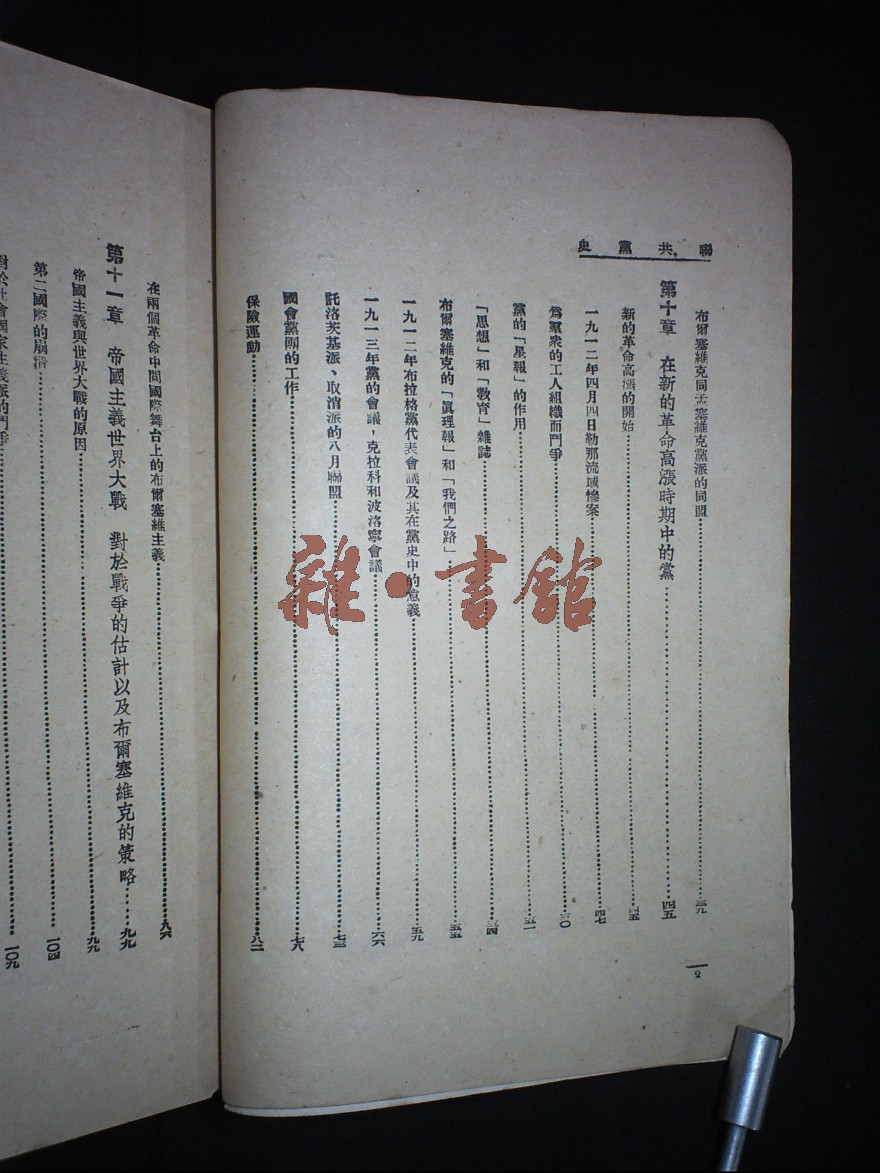 聯共黨史
布爾塞維克同孟塞維克黨派的同盟……三九
第十章 在新的革命高漲時期中的黨……四五
新的革命高漲的開始……四五
一九一二年四月四日勒那流域慘案……四七
爲羣衆的工人組織而鬥爭……五〇
黨的「星報」的作用……五一
「思想」和「敎育」雜誌……五四
布爾塞維克的「眞理報」和「我們之路」……五五
一九一二年布拉格黨代表會議及其在黨史中的意義……五九
一九一三年黨的會議，克拉科和波洛寧會議……六六
託洛茨基派、取消派的八月聯盟……七三
國會黨團的工作……七八
保險運動……八二
2
在兩個革命中間國際舞台上的布爾塞維主義……九六
第十一章 帝國主義世界大戰 對於戰爭的估計以及布爾塞維克的策略……九九
帝國主義與世界大戰的原因……九九
第二國際的崩潰……一〇四
對於社會國家主義派的鬥爭……一〇九
雜·書館